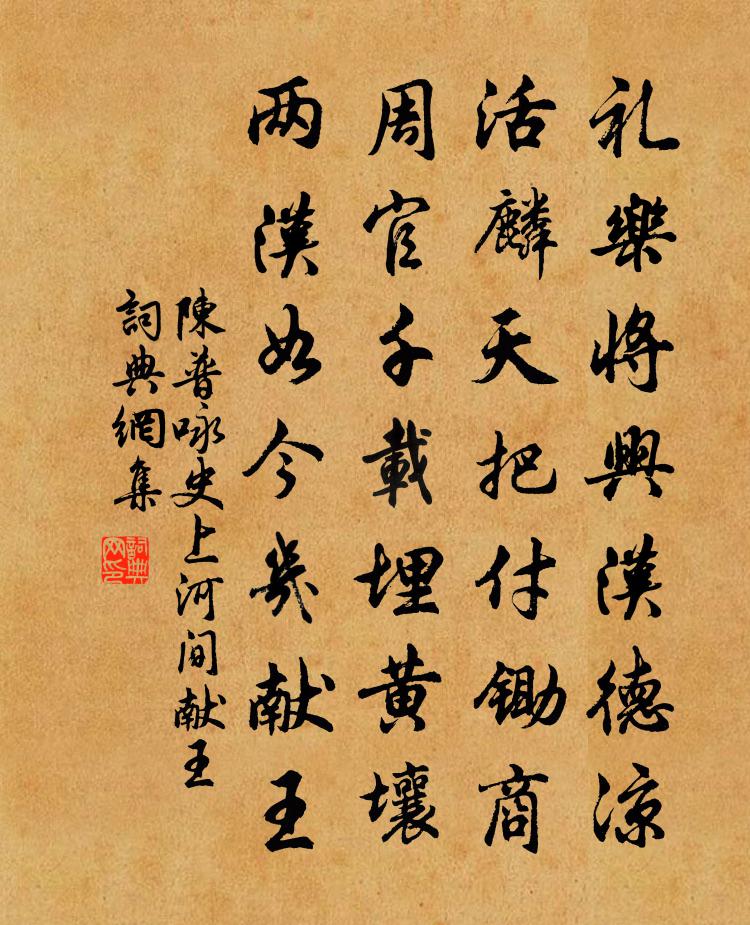 礼樂将興漢德凉
活麟天把付锄商
周官千載埋黄壤
两漢如今幾献王
陳普咏史上河间献王
詞典網集
詞典网印